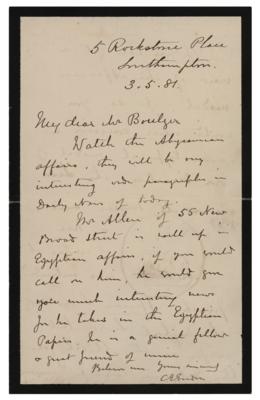 5 Rockstone Place
Southampton.
3.5.81.
My dear Mr Boulger
Watch the Abyssinian
affairs, they will be very
interesting vide paragraphs in
Daily News of today.
Mr Allen of 55 New
Broad Street is well up in
Egyptian affairs, if you would
call on him, he would give
you much interesting news
for he takes in the Egyptian
Papers. he is a genial fellow
& great friend of mine
Believe me Yours sincerely
C G Gordon